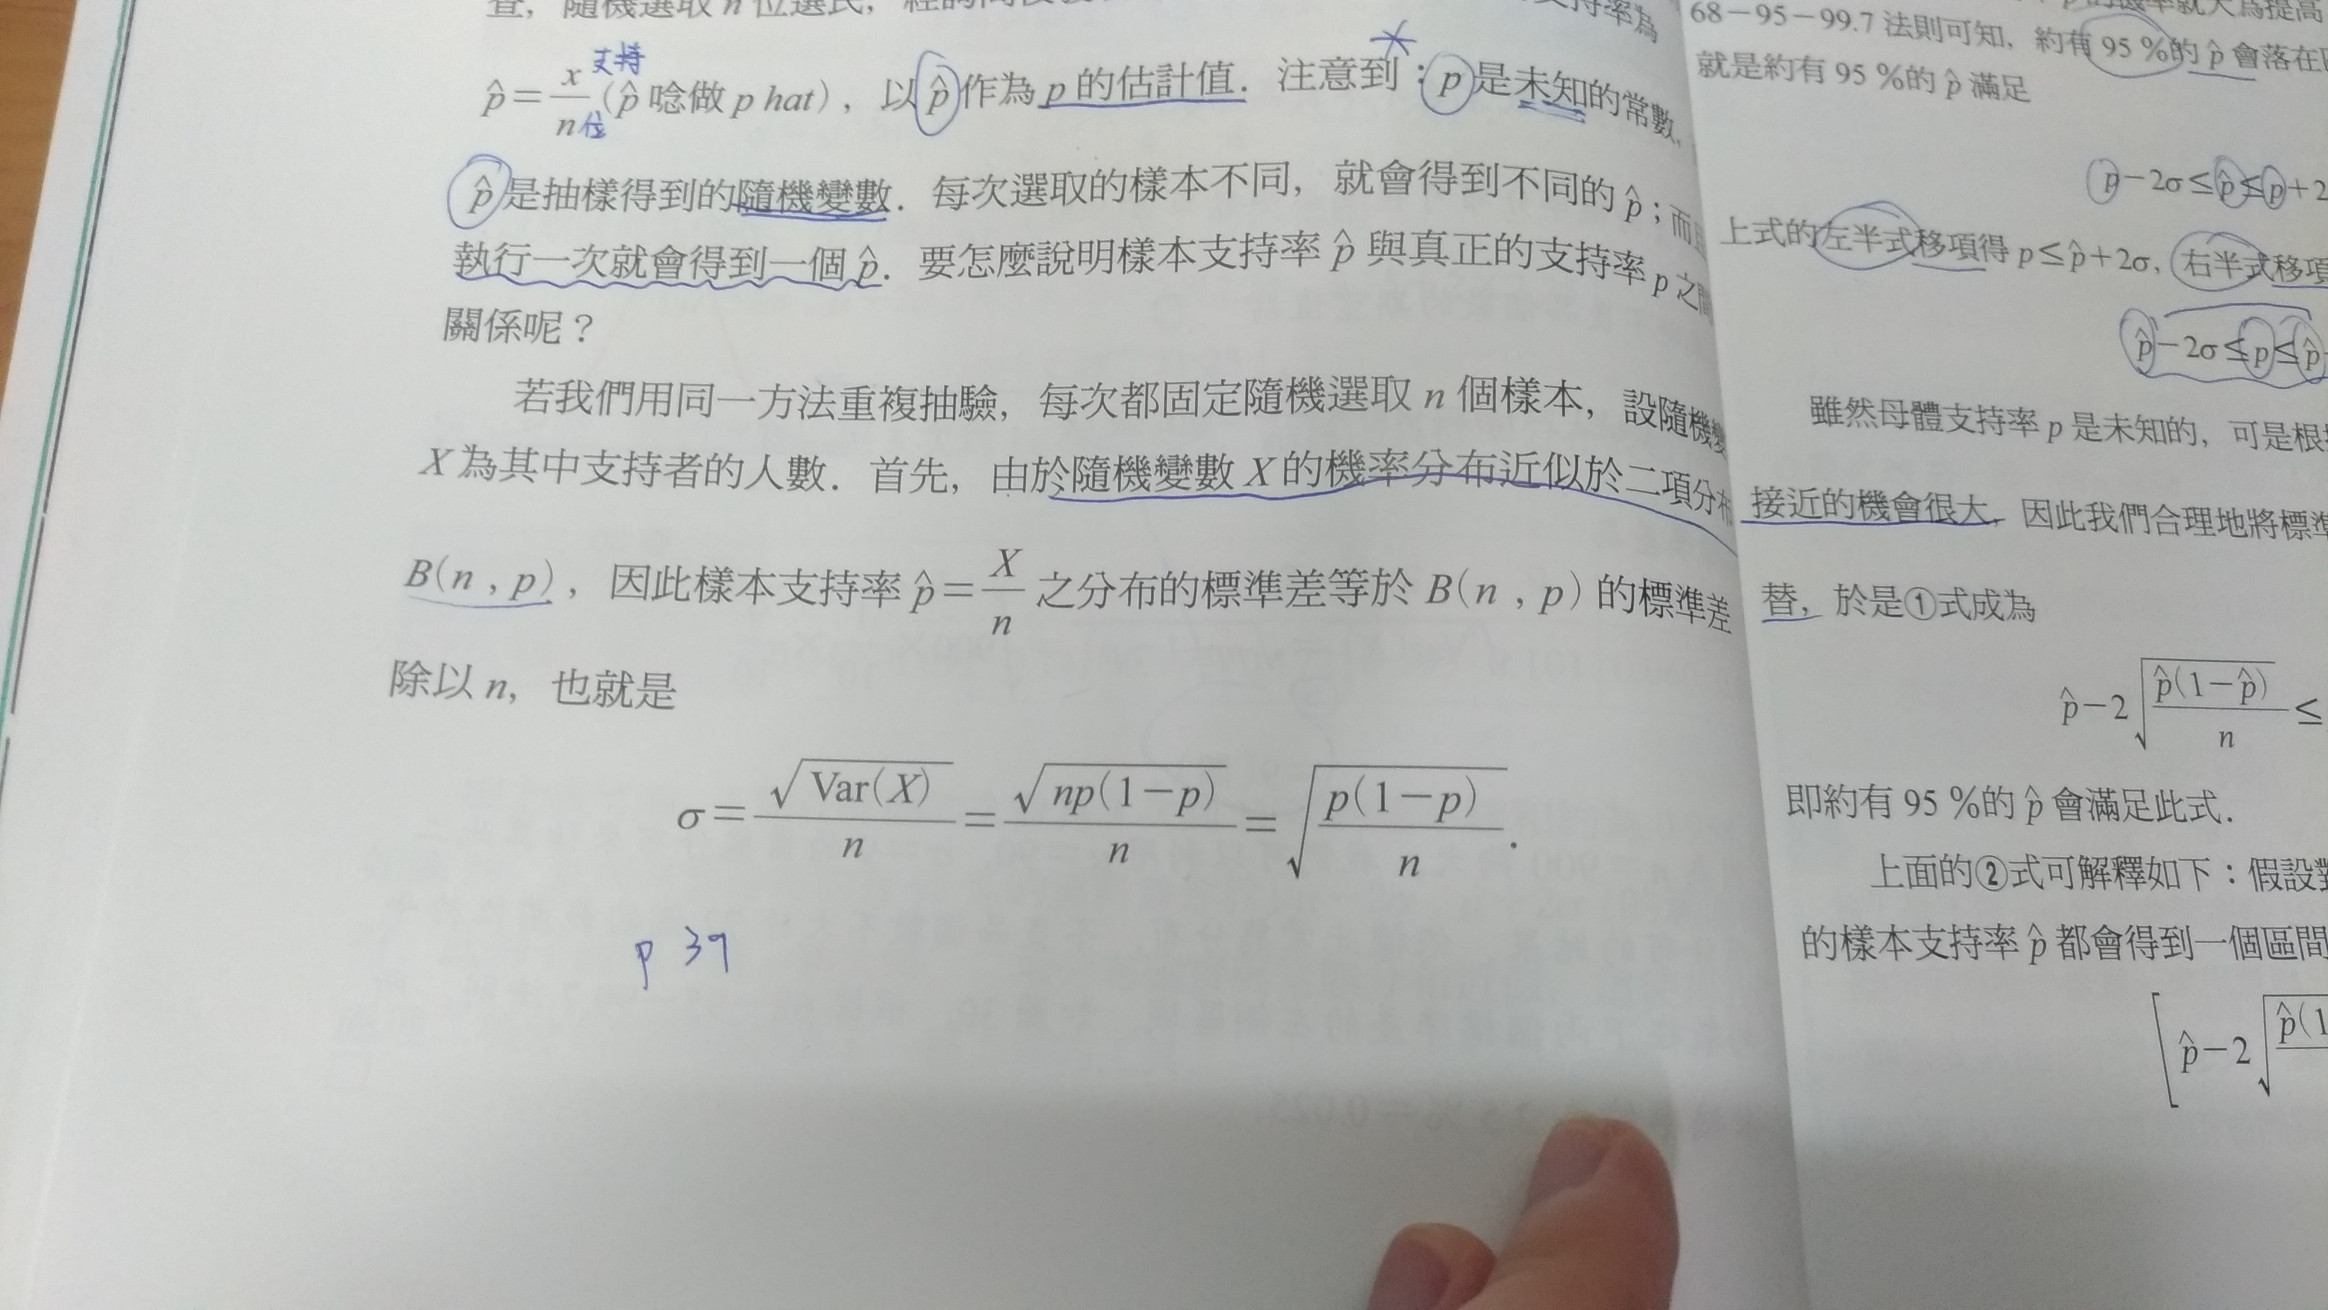 查，隨機選取 n 位選民，
支持率為
p̂ = x/n (p̂ 唸做 p hat)，以 p̂ 作為 p 的估計值．注意到：p 是未知的常數，
支持
位
p̂ 是抽樣得到的隨機變數．每次選取的樣本不同，就會得到不同的 p̂；而
執行一次就會得到一個 p̂．要怎麼說明樣本支持率 p̂ 與真正的支持率 p 之間
關係呢？
若我們用同一方法重複抽驗，每次都固定隨機選取 n 個樣本，設隨機變
X 為其中支持者的人數．首先，由於隨機變數 X 的機率分布近似於二項分布
B(n , p)，因此樣本支持率 p̂ = X/n 之分布的標準差等於 B(n , p) 的標準差
除以 n，也就是
σ = √Var(X)/n = √np(1−p)/n = √(p(1−p)/n).
p 39
的機率就大為提高
68－95－99.7 法則可知，約有 95 %的 p̂ 會落在
就是約有 95 %的 p̂ 滿足
p−2σ ≤ p̂ ≤ p+2
上式的左半式移項得 p ≤ p̂+2σ，右半式移項
p̂−2σ ≤ p ≤ p̂
雖然母體支持率 p 是未知的，可是根
接近的機會很大，因此我們合理地將標準
替，於是①式成為
p̂−2√(p̂(1−p̂)/n) ≤
即約有 95 %的 p̂ 會滿足此式．
上面的②式可解釋如下：假設
的樣本支持率 p̂ 都會得到一個區間
[p̂−2√p̂(1